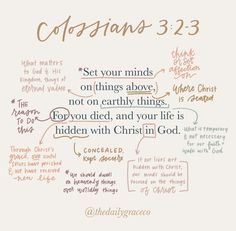 Colossians 3:2-3
think or set affection on
What matters to God & His Kingdom, things of eternal value
*Set your minds
on things above,
not on earthly things.
For you died, and your life is
hidden with Christ in God.
where Christ is seated
*THE reason TO DO this
Through Christ's grace, our
lives have perished & we have received
new life
CONCEALED,
kept secret
*We should dwell
on heavenly things
over worldly things
*If our lives are
hidden with Christ,
our minds should
be focused on the things
of Christ
What is temporary
& not necessary
for our faith +
walk with God
@thedailygraceco